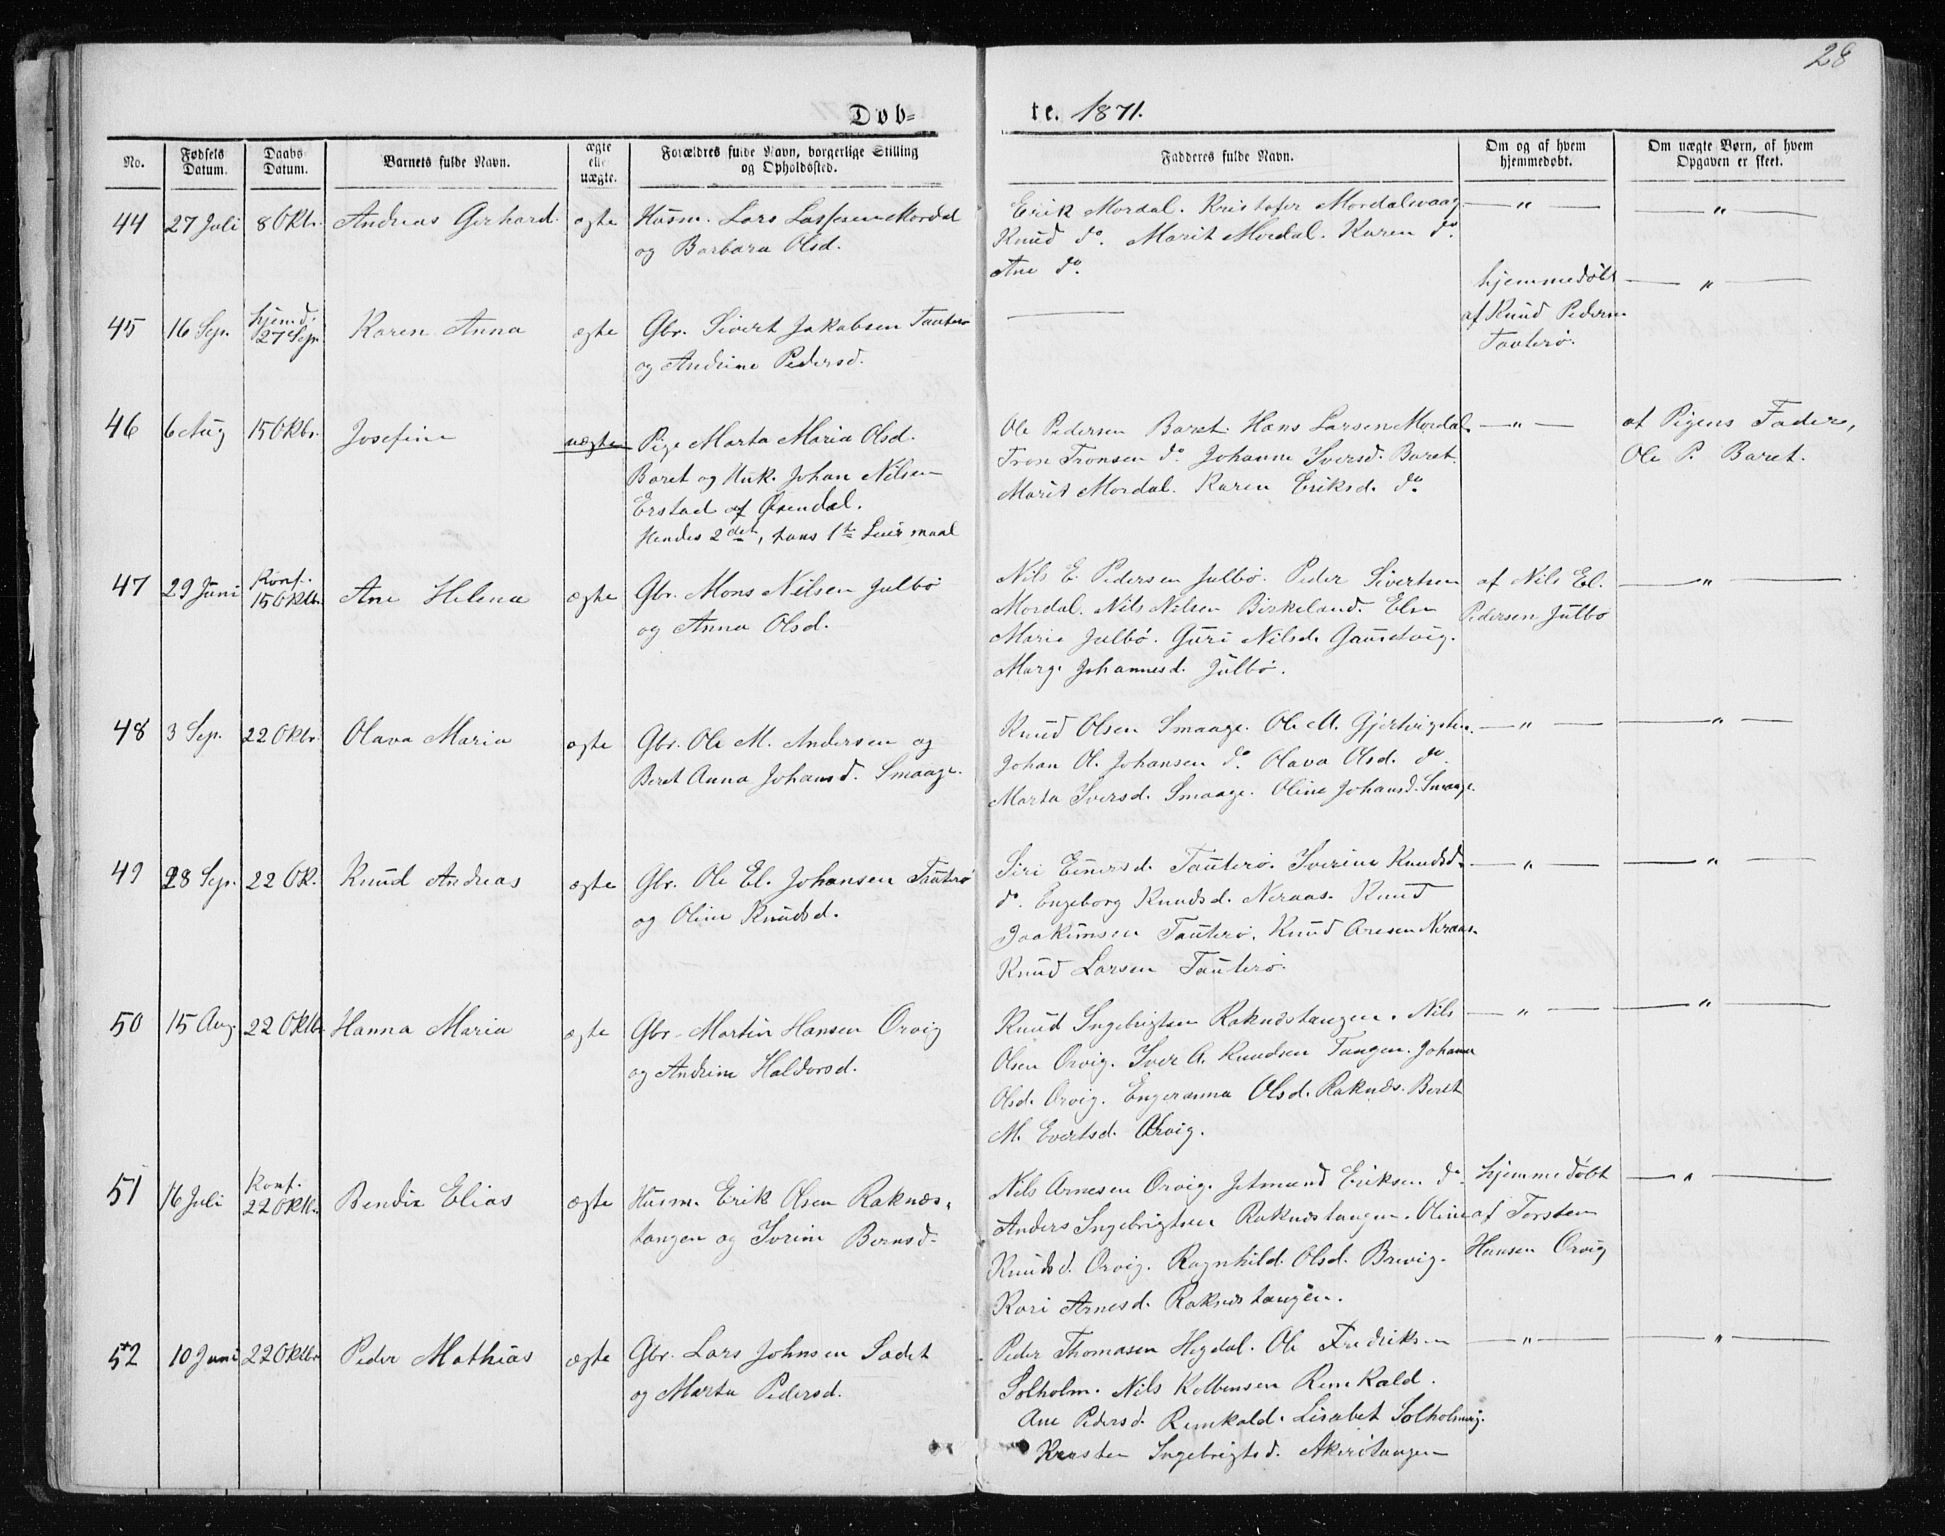 28
Døb-
te. 1871.
No.
Fødsels Datum.
Daabs Datum.
Barnets fulde Navn.
ægte elle uægte.
Forældres fulde Navn, borgerlige Stilling og Opholdssted.
Fadderes fulde Navn.
Om og af hvem hjemmedøbt.
Om uægte Børn, af hvem Opgaven er skeet.
44 27 Juli 8 Oktr. Andreas Gerhard. ægte Husm. Lars Lassesen Mordal
og Barbara Olsd.
Erik Mordal. Kristofer Mordalsvaag — " — — " —
Knud do. Marit Mordal. Karen do.
Ane do.
45 16 Sep. hjemd. 27 Sep. Karen Anna ægte Gbr. Sivert Jakobsen Tauterø
og Andrine Pedersd.
—
hjemmedøbt — " —
af Knud Pedersen
Tauterø.
46 6 Aug 15 Oktbr. Josefine uægte Pige Marta Maria Olsd.
Baret og Unk. Johan Nilsen
Erstad af Øxendal.
Hendes 2det, hans 1te Leiermaal
Ole Pedersen Baret. Hans Larsen Mordal. — " — af Pigens Fader,
Tron Tronsen do. Johanne Iversd. Baret. Ole P. Baret.
Marit Mordal. Karen Eriksd. do
47 29 Juni Konf. 15 Oktbr. Ane Helena ægte Gbr. Mons Nilsen Julbø
og Anna Olsd.
Nils E. Pedersen Julbø. Peder Sivertsen af Nils El. — " —
Mordal. Nils Nilsen Birkeland. Elen Pedersen Julbø
Marie Julbø. Guri Nilsd. Gausetvig.
Marg. Johannesd. Julbø.
48 3 Sep. 22 Oktbr. Olava Maria ægte Gbr. Ole M. Andersen og
Beret Anna Johansd. Smaage.
Knud Olsen Smaage. Ole M. Gjertvigsten. — " — — " —
Johan O. Johansen do. Olava Olsd. do.
Marta Iversd. Smaage. Oline Johansd. Smaage.
49 28 Sep. 22 Ok. Knud Andreas ægte Gbr. Ole El. Johansen Tauterø
og Oline Knudsd.
Siri Einersd. Tauterø. Iverine Knudsd. — " — — " —
do. Engeborg Knudsd. Neraas. Knud
Joakimsen Tauterø. Knud Aresen Neraas.
Knud Larsen Tauterø.
50 15 Aug. 22 Oktbr. Hanna Maria ægte Gbr. Martin Hansen Orvig
og Andrine Haldorsd.
Knud Ingebrigtsen Raknestangen. Nils — " — — " —
Olsen Orvig. Iver A. Knudsen Tangen. Johanna
Olsd. Orvig. Engeranna Olsd. Raknes. Beret
M. Evertsd. Orvig.
51 16 Juli Konf. 22 Oktb. Bendix Elias ægte Husm. Erik Olsen Raknes-
tangen og Iverine Berntsd.
Nils Arnesen Orvig. Jetmund Eriksen do. hjemmedøbt — " —
Anders Ingebrigtsen Raknestangen. Oline af Torsten
Knudsd. Orvig. Ragnhild Olsd. Brevig. Hansen Orvig
Kari Arnesd. Raknestangen.
52 10 Juni 22 Oktbr Peder Mathias ægte Gbr. Lars Johnsen Sadet
og Marta Pedersd.
Peder Thomasen Hegdal. Ole Fredriksen — " — — " —
Solholm. Nils Kolbensen Remkald.
Ane Pedersd. Remkald. Lisabet Solholmvig.
Kirsten Ingebrigtsd. Akerøtangen